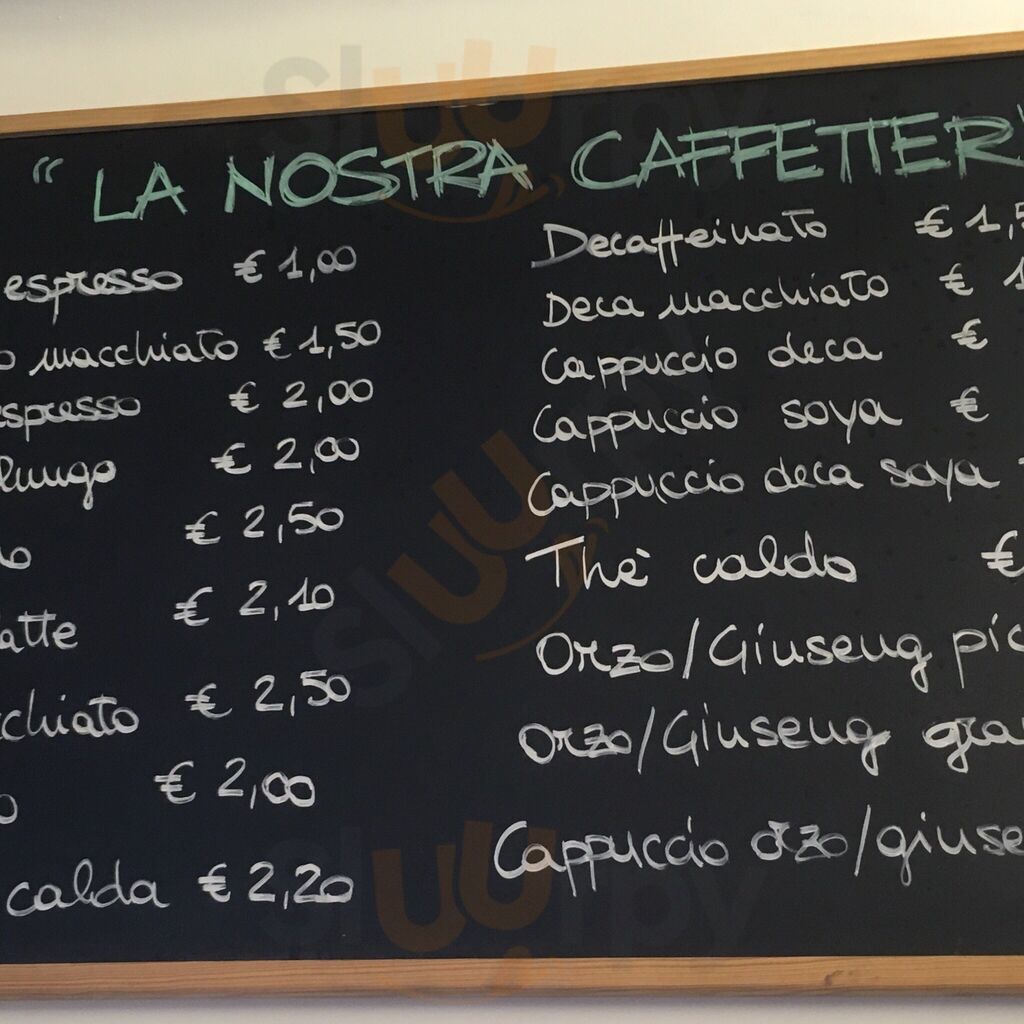 "LA NOSTRA CAFFETTER
espresso € 1,00
o macchiato € 1,50
espresso € 2,00
lungo € 2,00
o € 2,50
latte € 2,10
cchiato € 2,50
o € 2,00
calda € 2,20
Decaffeinato € 1,5
Deca macchiato € 1
Cappuccio deca €
Cappuccio soya €
Cappuccio deca soya
Thè caldo €
Orzo/Ginseng pic
Orzo/Ginseng gra
Cappuccio orzo/ginse
sluurpy
sluurpy
sluurpy